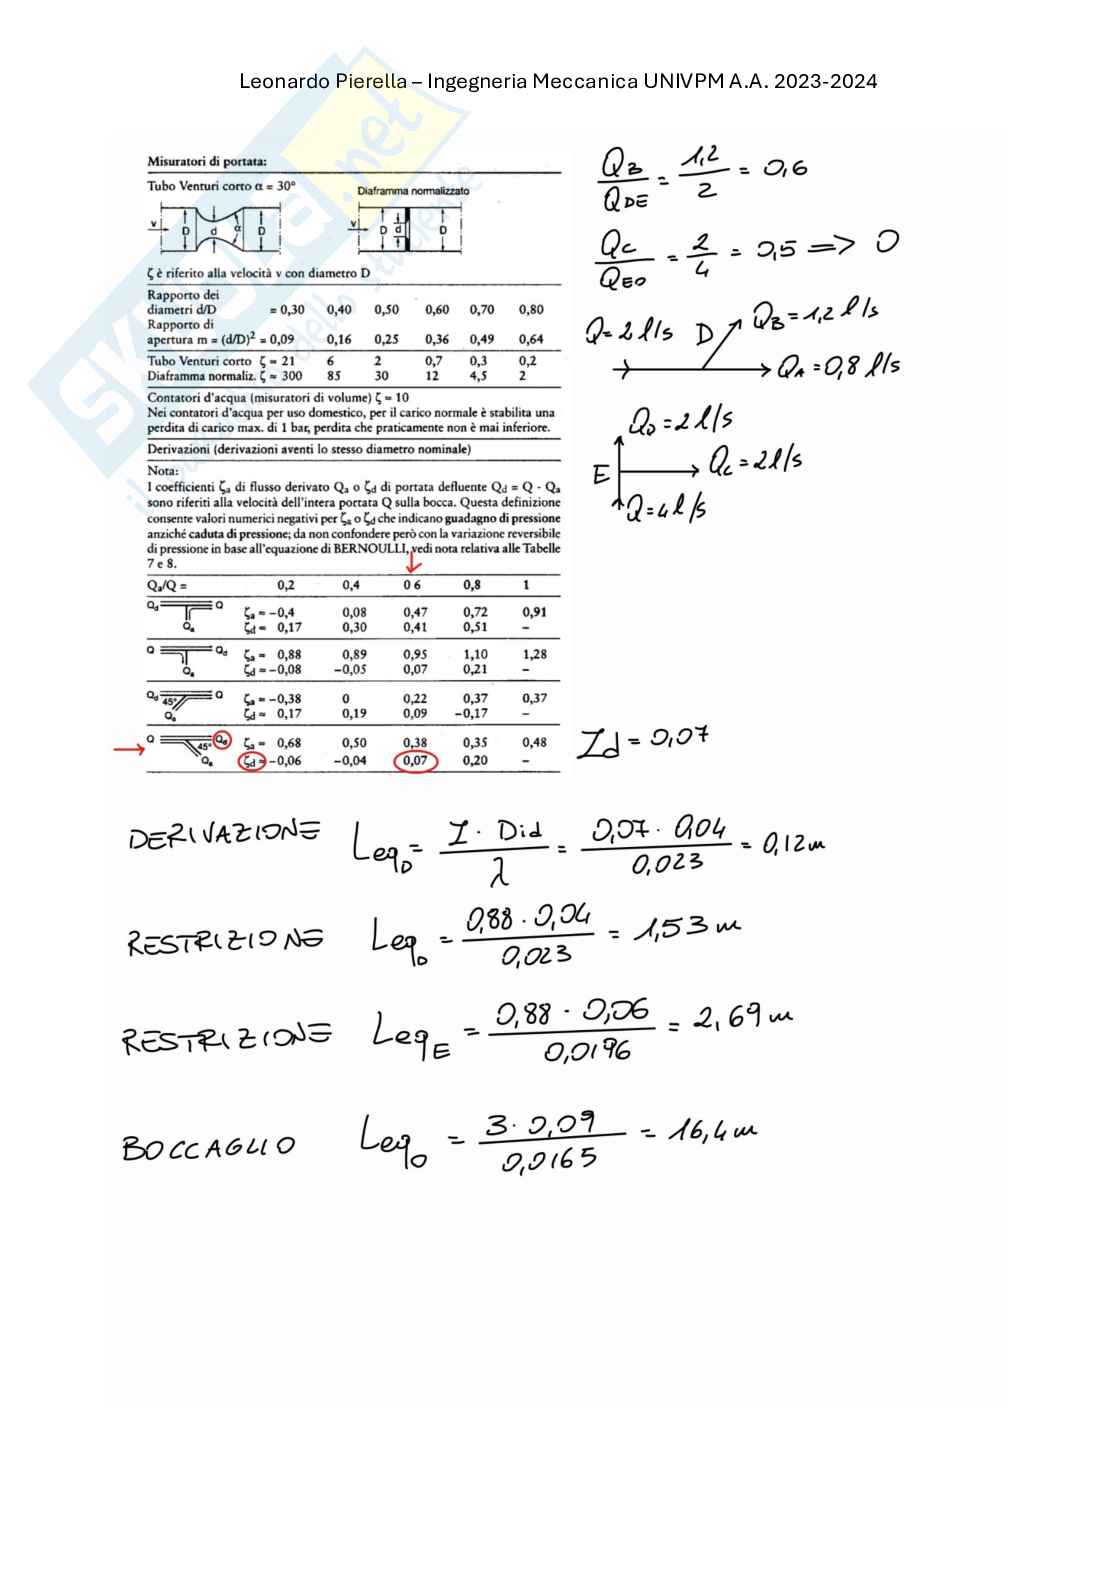 Leonardo Pierella – Ingegneria Meccanica UNIVPM A.A. 2023-2024
Misuratori di portata:
Tubo Venturi corto α = 30°
Diaframma normalizzato
v D d α D
v D d D
ζ è riferito alla velocità v con diametro D
Rapporto dei
diametri d/D = 0,30 0,40 0,50 0,60 0,70 0,80
Rapporto di
apertura m = (d/D)² = 0,09 0,16 0,25 0,36 0,49 0,64
Tubo Venturi corto ζ = 21 6 2 0,7 0,3 0,2
Diaframma normaliz. ζ = 300 85 30 12 4,5 2
Contatori d'acqua (misuratori di volume) ζ ≈ 10
Nei contatori d'acqua per uso domestico, per il carico normale è stabilita una
perdita di carico max. di 1 bar, perdita che praticamente non è mai inferiore.
Derivazioni (derivazioni aventi lo stesso diametro nominale)
Nota:
I coefficienti ζa di flusso derivato Qa o ζd di portata defluente Qd = Q - Qa
sono riferiti alla velocità dell'intera portata Q sulla bocca. Questa definizione
consente valori numerici negativi per ζa o ζd che indicano guadagno di pressione
anziché caduta di pressione; da non confondere però con la variazione reversibile
di pressione in base all'equazione di BERNOULLI, vedi nota relativa alle Tabelle
7 e 8.
Qa/Q = 0,2 0,4 0 6 0,8 1
Qd Q ζa = -0,4 0,08 0,47 0,72 0,91
Qa ζd = 0,17 0,30 0,41 0,51 –
Q Qd ζa = 0,88 0,89 0,95 1,10 1,28
Qa ζd = -0,08 -0,05 0,07 0,21 –
Qd 45° Q ζa = -0,38 0 0,22 0,37 0,37
Qa ζd = 0,17 0,19 0,09 -0,17 –
Q 45° Qd ζa = 0,68 0,50 0,38 0,35 0,48
Qa ζd = -0,06 -0,04 0,07 0,20 –
QB/QDE = 1,2/2 = 0,6
QC/QEO = 2/4 = 0,5 => 0
Q=2 l/s D QB=1,2 l/s
QA=0,8 l/s
QD=2 l/s
E QC=2 l/s
Q=4 l/s
Zd=0,07
DERIVAZIONE LeqD = Z · Did / λ = 0,07 · 0,04 / 0,023 = 0,12m
RESTRIZIONE LeqD = 0,88 · 0,04 / 0,023 = 1,53 m
RESTRIZIONE LeqE = 0,88 · 0,06 / 0,0196 = 2,69 m
BOCCAGLIO LeqO = 3 · 0,09 / 0,0165 = 16,4 m